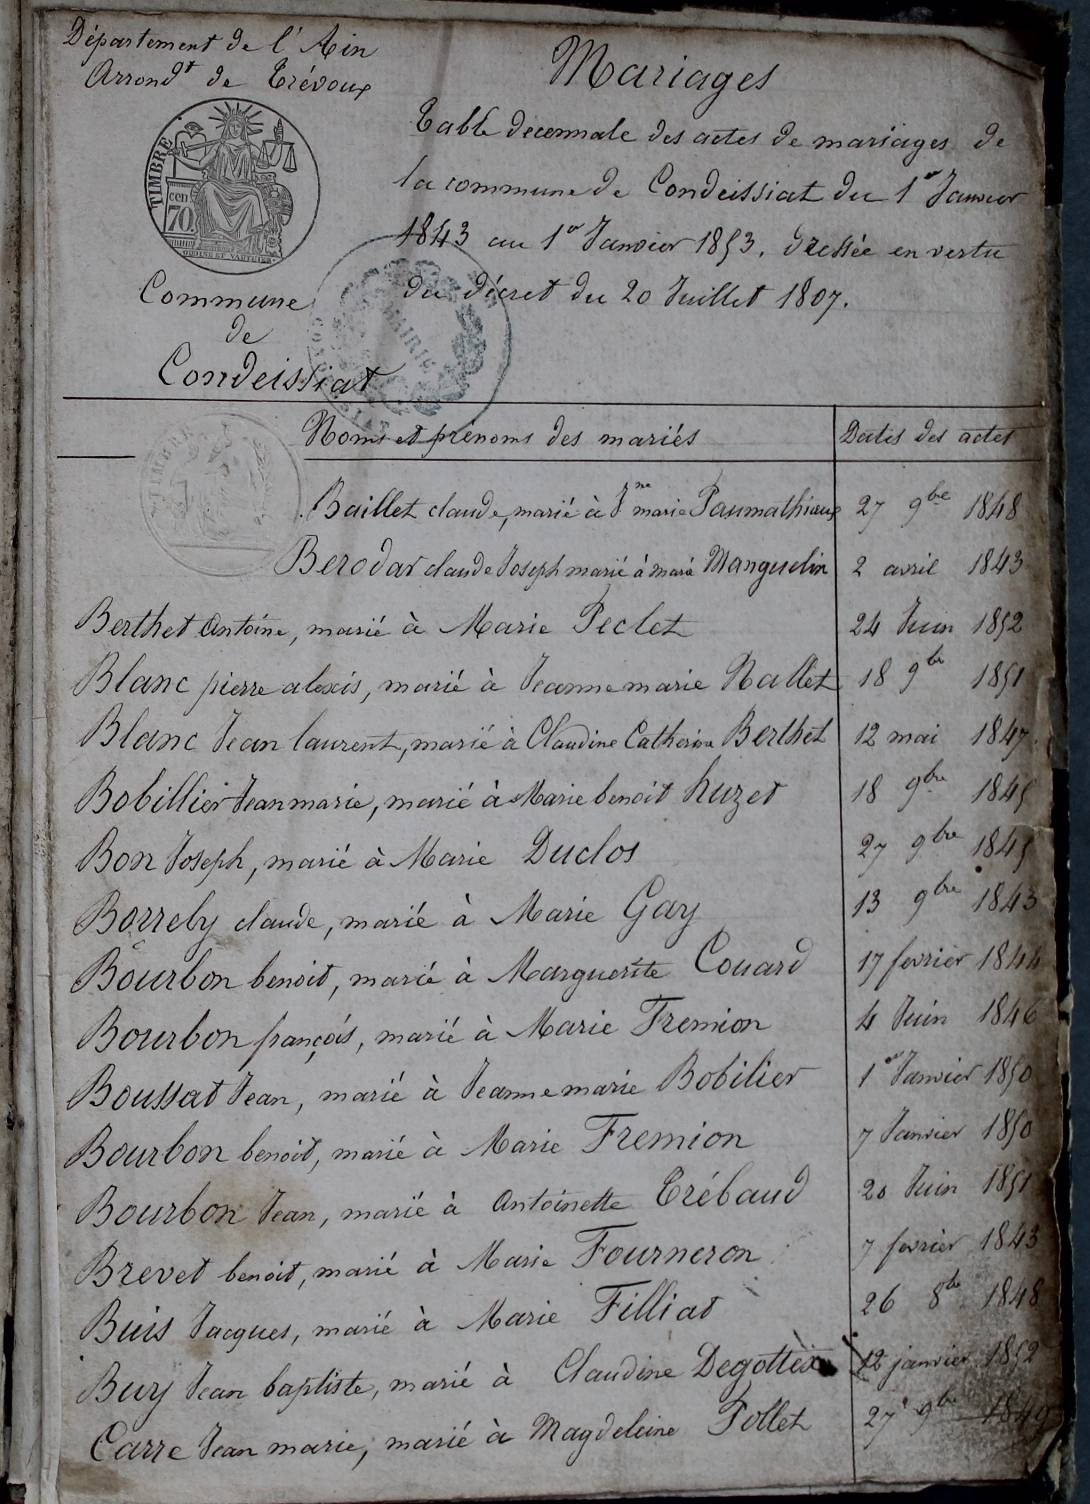 Département de l'Ain
Arrond^t de Trévoux
TIMBRE
cen
70.
Commune
de
Condeissiat
Mariages
Table décennale des actes de mariages de
la commune de Condeissiat du 1^er Janvier
1843 au 1^er Janvier 1853. dressée en vertu
du décret du 20 Juillet 1807.
MAIRIE
Noms et prénoms des mariés Dates des actes
Baillet claude, marié à J^ne marie Paumathieux 27 9^bre 1848
Berodar claude Joseph marié à marie Manguelin 2 avril 1843
Berthet Antoine, marié à Marie Peclet 24 Juin 1852
Blanc pierre alexis, marié à Jeanne marie Nallet 18 9^bre 1851
Blanc Jean laurent, marié à Claudine Catherine Berthet 12 mai 1847
Bobillier Jean marie, marié à Marie benoit huzet 18 9^bre 1845
Bon Joseph, marié à Marie Duclos 27 9^bre 1845
Borrely claude, marié à Marie Gay 13 9^bre 1843
Bourbon benoit, marié à Marguerite Couard 17 fevrier 1844
Bourbon françois, marié à Marie Fremion 4 Juin 1846
Boussat Jean, marié à Jeanne marie Bobilier 1^er Janvier 1850
Bourbon benoit, marié à Marie Fremion 7 Janvier 1850
Bourbon Jean, marié à Antoinette Trébaud 20 Juin 1851
Brevet benoit, marié à Marie Fourneron 7 fevrier 1843
Buis Jacques, marié à Marie Filliat 26 8^bre 1848
Buy Jean baptiste, marié à Claudine Degottex 12 janvier 1852
Carre Jean marie, marié à Magdeleine Pollet 27 9^bre 1849